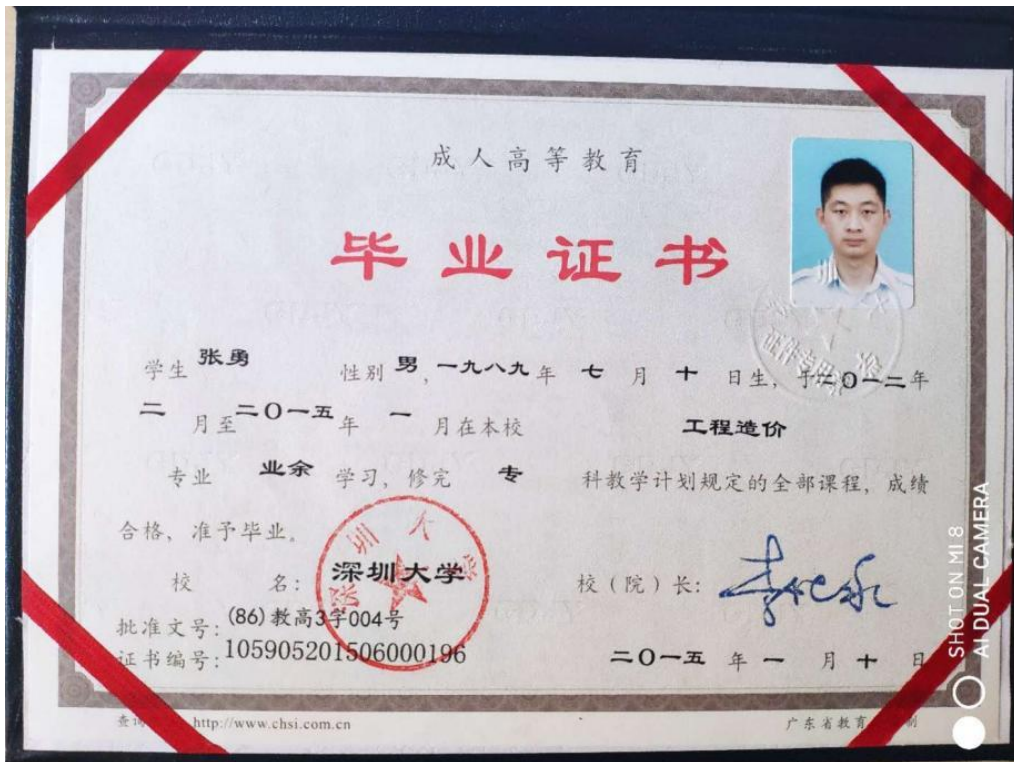 成人高等教育
毕业证书
学生 张勇 性别 男，一九八九 年 七 月 十 日生，于二〇一二年
二 月至 二〇一五 年 一 月在本校 工程造价
专业 业余 学习，修完 专 科教学计划规定的全部课程，成绩
合格，准予毕业。
深圳大学
校 名：深圳大学 校（院）长：
批准文号：(86)教高3字004号
证书编号：105905201506000196 二〇一五 年 一 月 十 日
http://www.chsi.com.cn 广东省教育
证件专用
SHOT ON MI 8
AI DUAL CAMERA